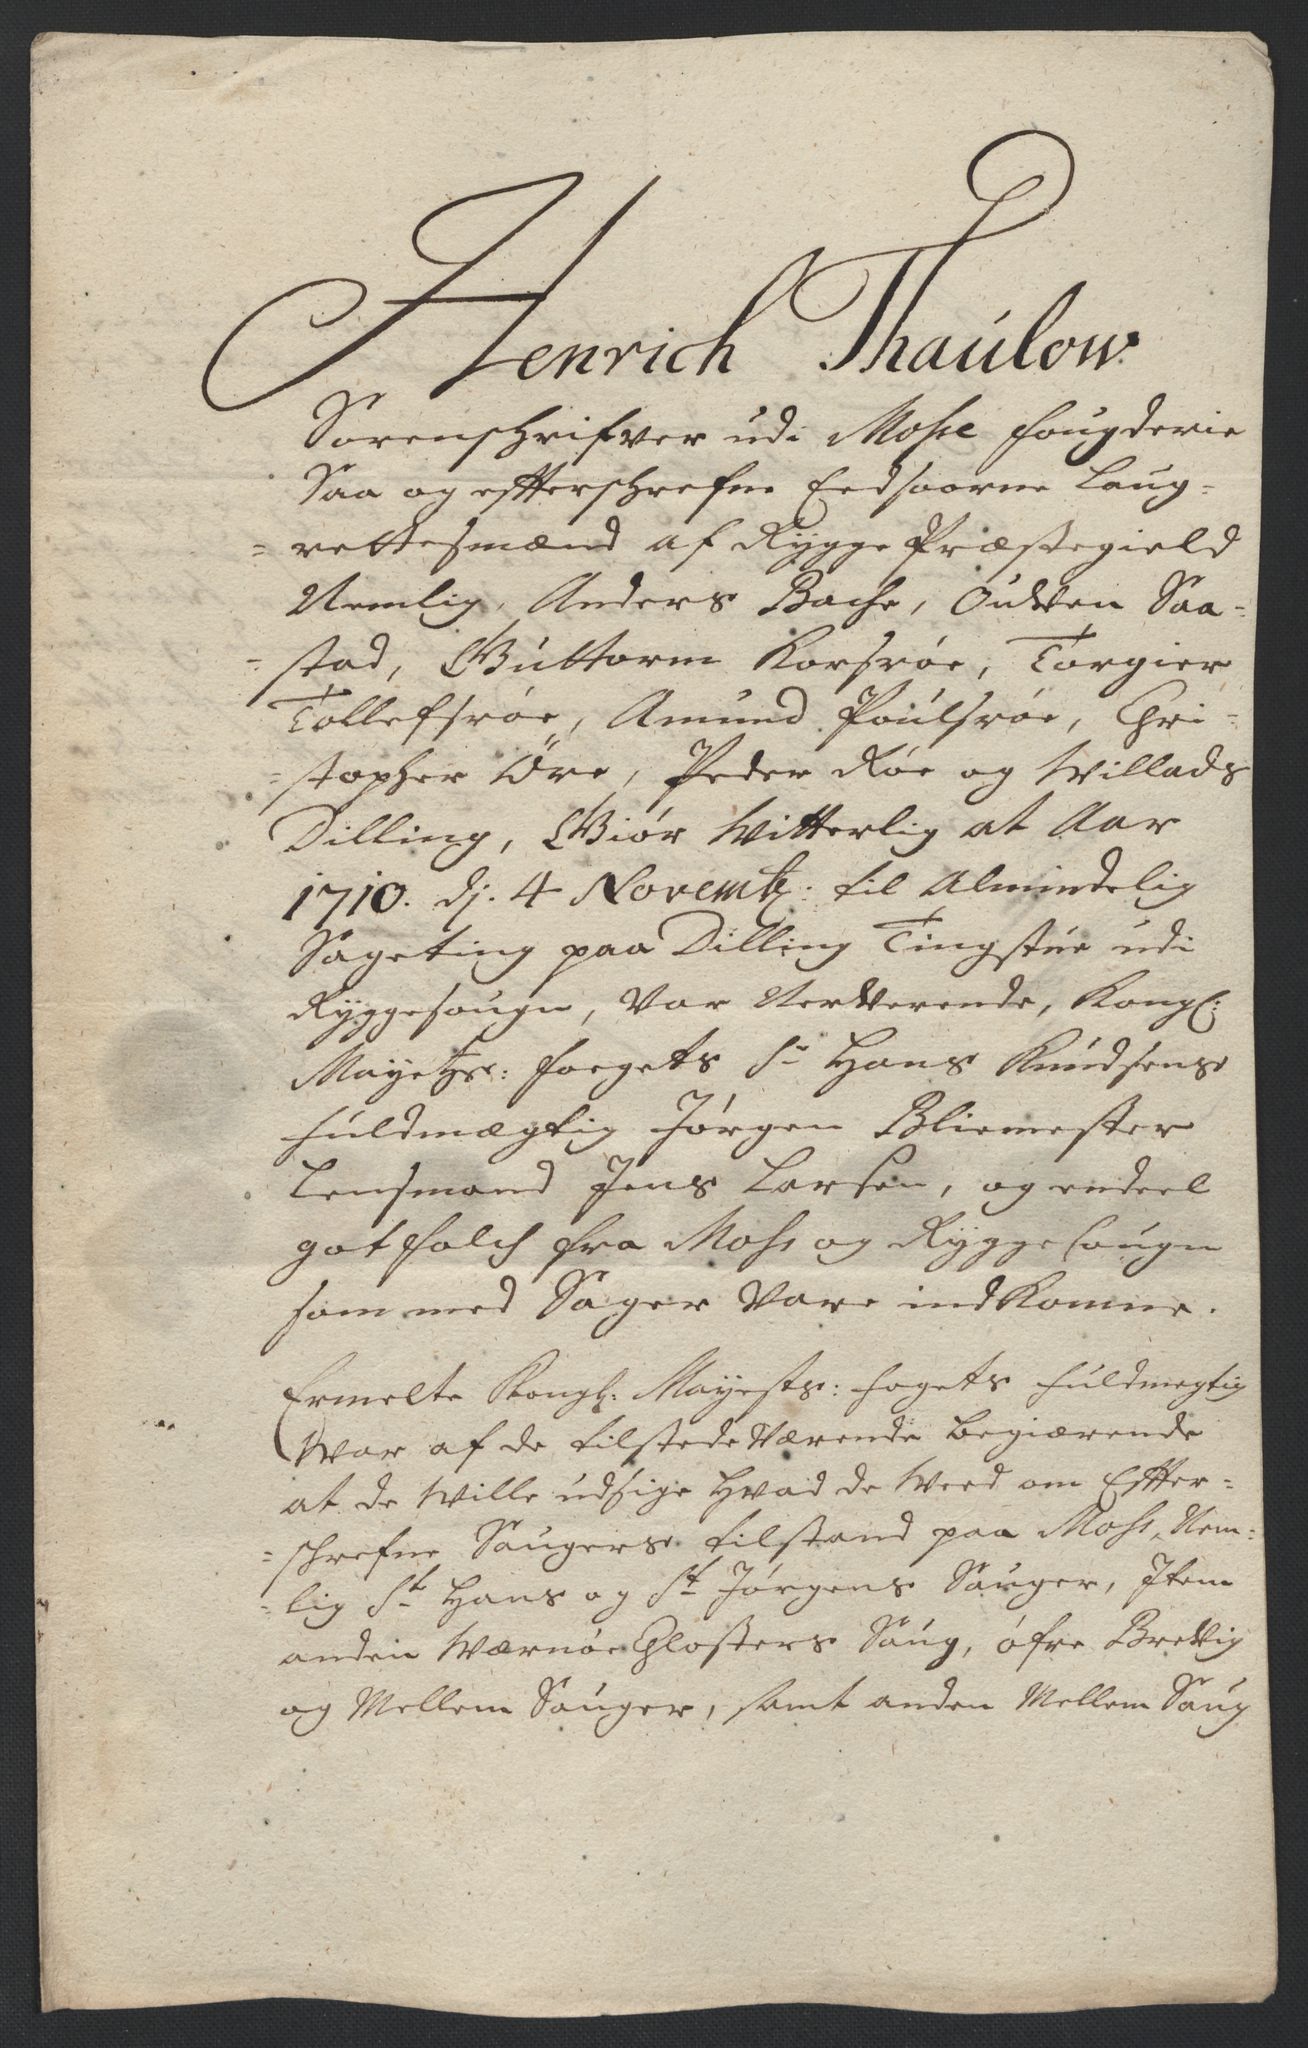 Henrich Thaulow
Sorenschrifver udi Mosse fougderie
Saa og effterschrefne Eedsoorne Laug-
-rettesmænd af Rygge Præstegield
Nemlig, Anders Bache, Oudven Saa-
-stad, Guttorm Korsrøe, Torgier
Tollefsrøe, Amund Poulsrøe, Chri-
-stopher Öre, Peder Røe og Willads
Dilling, Giør Witterlig at Aar
1710. dj. 4 Novemb: til Almindelig
Sageting paa Dilling Tingstue udi
Ryggesougn, Var Nerverende, Kongl:
Mayetzs: foegets Sr Hans Knudsens
fuldmægtig Jørgen Bliemester
Lensmand Jens Larsen, og endeel
got folch fra Moss og Rygge Sougn
som med Sager Vare indkomne.
Ermelte Kongl: Mayests: fogets fuldmegtig
War af de tilstedeværende begiærende
at de Wille udsige hvad de Weed om Effter-
-schrefne Saugers tilstand paa Moss, Nem-
-lig St Hans og St Jørgens Sauger, Item
anden Wærnøe Closters Saug, øfre Brevig
og Mellem Sauger, samt anden Mellem Saug